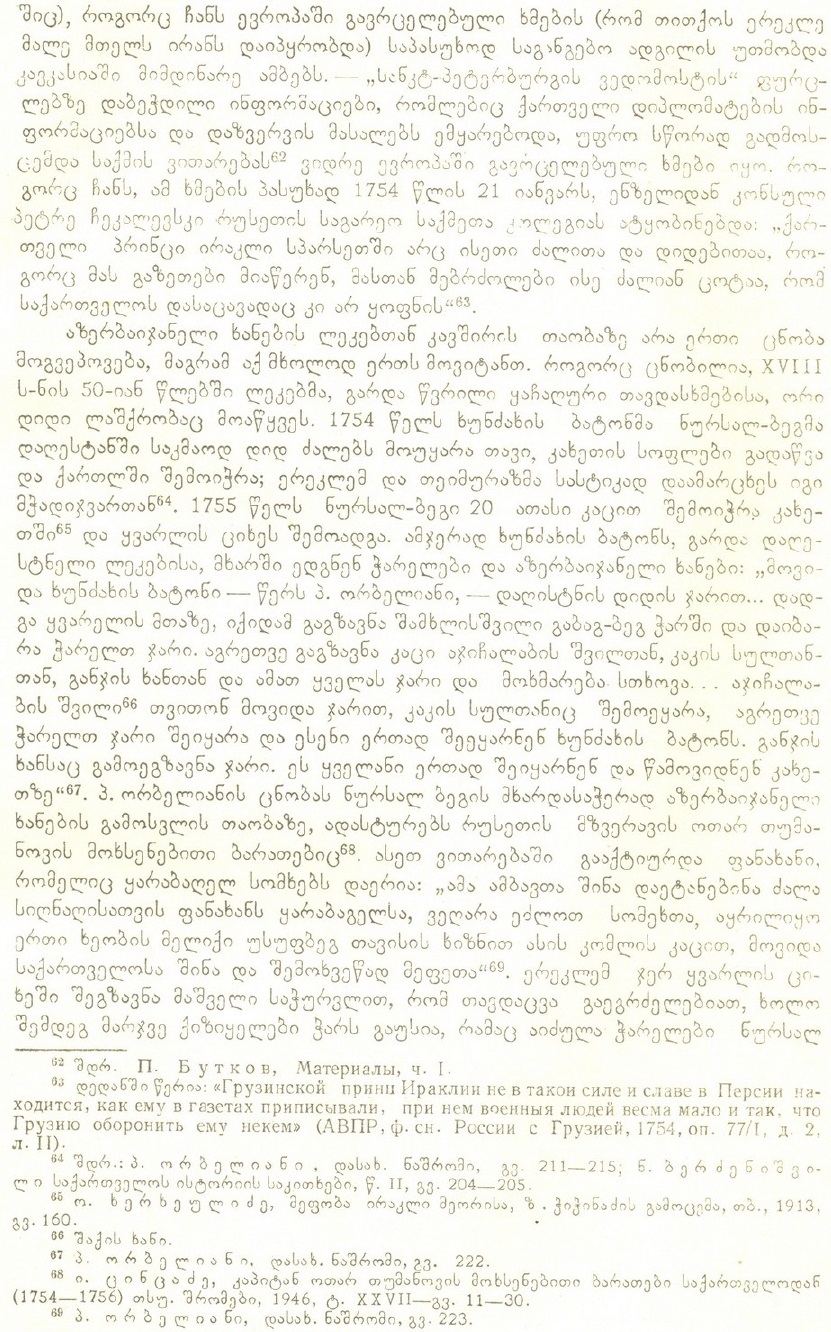 შიც), როგორც ჩანს ევროპაში გავრცელებული ხმების (რომ თითქოს ერეკლე
მალე მთელს ირანს დაიპყრობდა) საპასუხოდ საგანგებო ადგილის უთმობდა
კავკასიაში მიმდინარე ამბებს. — „სანკტ-პეტერბურგის ვედომოსტის“ ფურც-
ლებზე დაბეჭდილი ინფორმაციები, რომლებიც ქართველი დიპლომატების ინ-
ფორმაციებსა და დაზვერვის მასალებს ემყარებოდა, უფრო სწორად გადმოს-
ცემდა საქმის ვითარებას⁶² ვიდრე ევროპაში გავრცელებული ხმები იყო. რო-
გორც ჩანს, ამ ხმების პასუხად 1754 წლის 21 იანვარს, ენზელიდან კონსული
პეტრე ჩეკალევსკი რუსეთის საგარეო საქმეთა კოლეგიას ატყობინებდა: „ქარ-
თველი პრინცი ირაკლი სპარსეთში არც ისეთი ძალითა და დიდებითაა, რო-
გორც მას გაზეთები მიაწერენ, მასთან მებრძოლები ისე ძალიან ცოტაა, რომ
საქართველოს დასაცავადაც კი არ ყოფნის“⁶³.
აზერბაიჯანელი ხანების ლეკებთან კავშირის თაობაზე არა ერთი ცნობა
მოგვეპოვება, მაგრამ აქ მხოლოდ ერთს მოვიტანთ. როგორც ცნობილია, XVIII
ს-ნის 50-იან წლებში ლეკებმა, გარდა წვრილი ყაჩაღური თავდასხმებისა, ორი
დიდი ლაშქრობაც მოაწყვეს. 1754 წელს ხუნძახის ბატონმა ნურსალ-ბეგმა
დაღესტანში საკმაოდ დიდ ძალებს მოუყარა თავი, კახეთის სოფლები გადაწვა
და ქართლში შემოიჭრა; ერეკლემ და თეიმურაზმა სასტიკად დაამარცხეს იგი
მჭადიჯვართან⁶⁴. 1755 წელს ნურსალ-ბეგი 20 ათასი კაცით შემოიჭრა კახე-
თში⁶⁵ და ყვარლის ციხეს შემოადგა. ამჯერად ხუნძახის ბატონს, გარდა დაღე-
სტნელი ლეკებისა, მხარში ედგნენ ჭარელები და აზერბაიჯანელი ხანები: „მოვი-
და ხუნძახის ბატონი — წერს პ. ორბელიანი, — დაღისტნის დიდის ჯარით... დად-
გა ყვარელის მთაზე, იქიდამ გაგზავნა შამხლისშვილი გაბაგ-ბეგ ჭარში და დაიბა-
რა ჭარელთ ჯარი. აგრეთვე გაგზავნა კაცი აჯიჩალაბის შვილთან, კაკის სულთან-
თან, განჯის ხანთან და ამათ ყველას ჯარი და მოხმარება სთხოვა... აჯიჩალა-
ბის შვილი⁶⁶ თვითონ მოვიდა ჯარით, კაკის სულთანიც შემოეყარა, აგრეთვე
ჭარელთ ჯარი შეიყარა და ესენი ერთად შეეყარნენ ხუნძახის ბატონს. განჯის
ხანსაც გამოეგზავნა ჯარი. ეს ყველანი ერთად შეიყარნენ და წამოვიდნენ კახე-
თზე“⁶⁷. პ. ორბელიანის ცნობას ნურსალ ბეგის მხარდასაჭერად აზერბაიჯანელი
ხანების გამოსვლის თაობაზე, ადასტურებს რუსეთის მზვერავის ოთარ თუმა-
ნოვის მოხსენებითი ბარათებიც⁶⁸. ასეთ ვითარებაში გააქტიურდა ფანახანი,
რომელიც ყარაბაღელ სომხებს დაერია: „ამა ამბავთა შინა დაეტანებინა ძალა
სიღნაღისათვის ფანახანს ყარაბაგელსა, ვეღარა ეძლოთ სომეხთა, აყრილიყო
ერთი ხეობის მელიქი უსუფბეგ თავისის ხიზნით ასის კომლის კაცით, მოვიდა
საქართველოსა შინა და შემოხვეწად მეფეთა“⁶⁹. ერეკლემ ჯერ ყვარლის ცი-
ხეში შეგზავნა მაშველი საჭურვლით, რომ თავდაცვა გაეგრძელებიათ, ხოლო
შემდეგ მარჯვე ქიზიყელები ჭარს გაუსია, რამაც აიძულა ჭარელები ნურსალ
⁶² შდრ. П. Бутков, Материалы, ч. I.
⁶³ დედანში წერია: «Грузинской принц Ираклии не в такои силе и славе в Персии на-
ходится, как ему в газетах приписывали, при нем военныя людей весма мало и так, что
Грузию оборонить ему некем» (АВПР, ф. сн. России с Грузией, 1754, оп. 77/I, д. 2,
л. II).
⁶⁴ შდრ.: პ. ორბელიანი, დასახ. ნაშრომი, გვ. 211—215; ნ. ბერძენიშვი-
ლი საქართველოს ისტორიის საკითხები, წ. II, გვ. 204—205.
⁶⁵ ო. ხერხეულიძე, მეფობა ირაკლი მეორისა, ზ. ჭიჭინაძის გამოცემა, თბ., 1913,
გვ. 160.
⁶⁶ შაქის ხანი.
⁶⁷ პ. ორბელიანი, დასახ. ნაშრომი, გვ. 222.
⁶⁸ ი. ცინცაძე, კაპიტან ოთარ თუმანოვის მოხსენებითი ბარათები საქართველოდან
(1754—1756) თსუ. შრომები, 1946, ტ. XXVII—გვ. 11—30.
⁶⁹ პ. ორბელიანი, დასახ. ნაშრომი, გვ. 223.